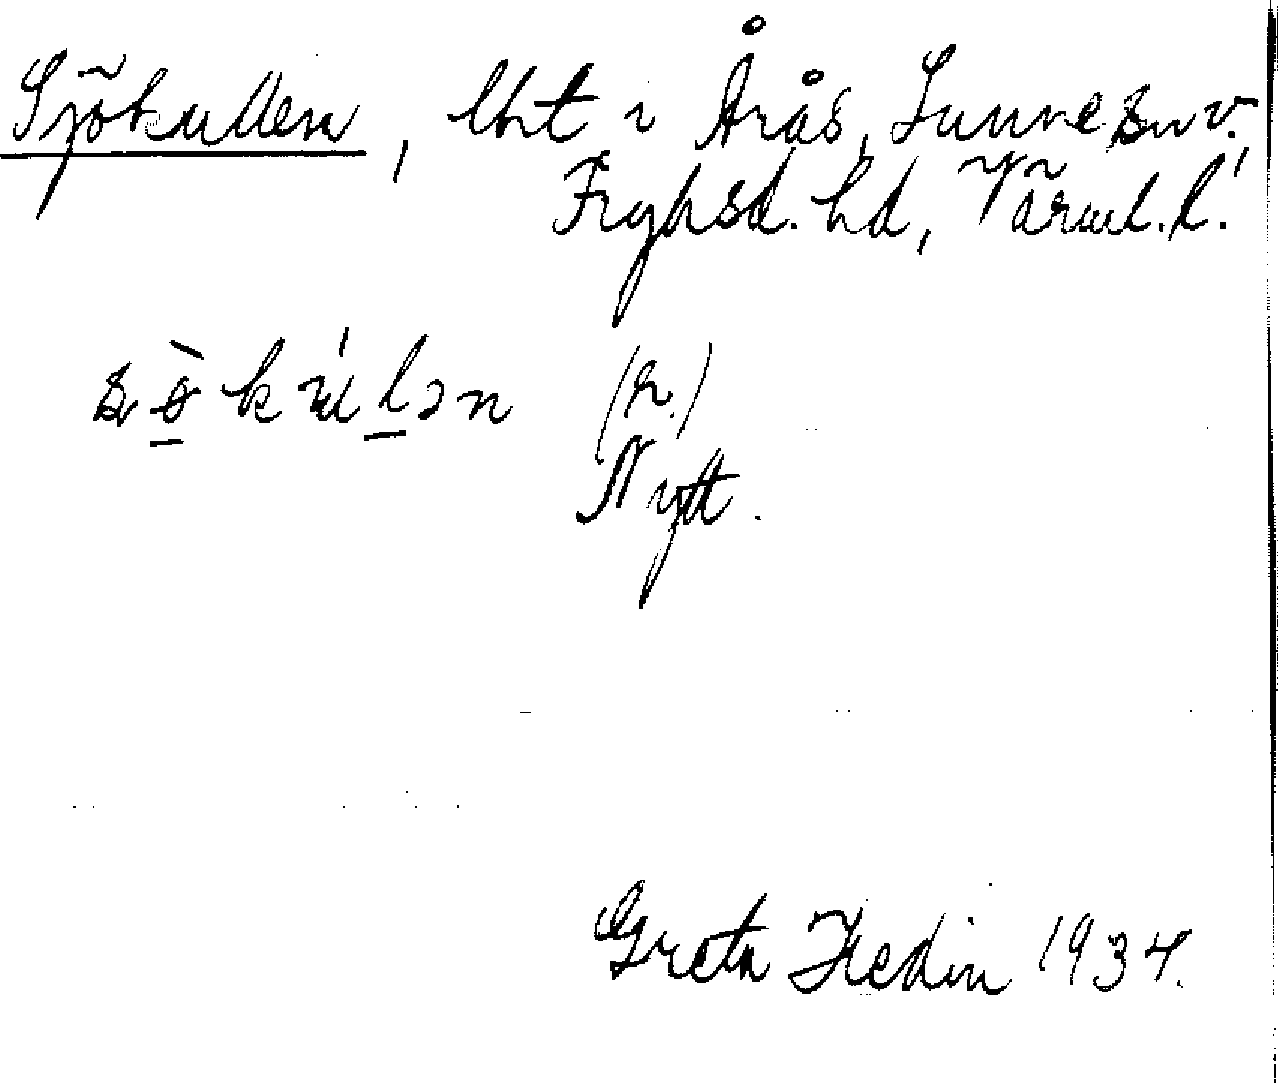 Sjökullen, lht i Årås, Sunne sn v.
Fryksd. hd, Värml. l.
sökulən (r.)
Nytt.
Greta Hedin 1934.